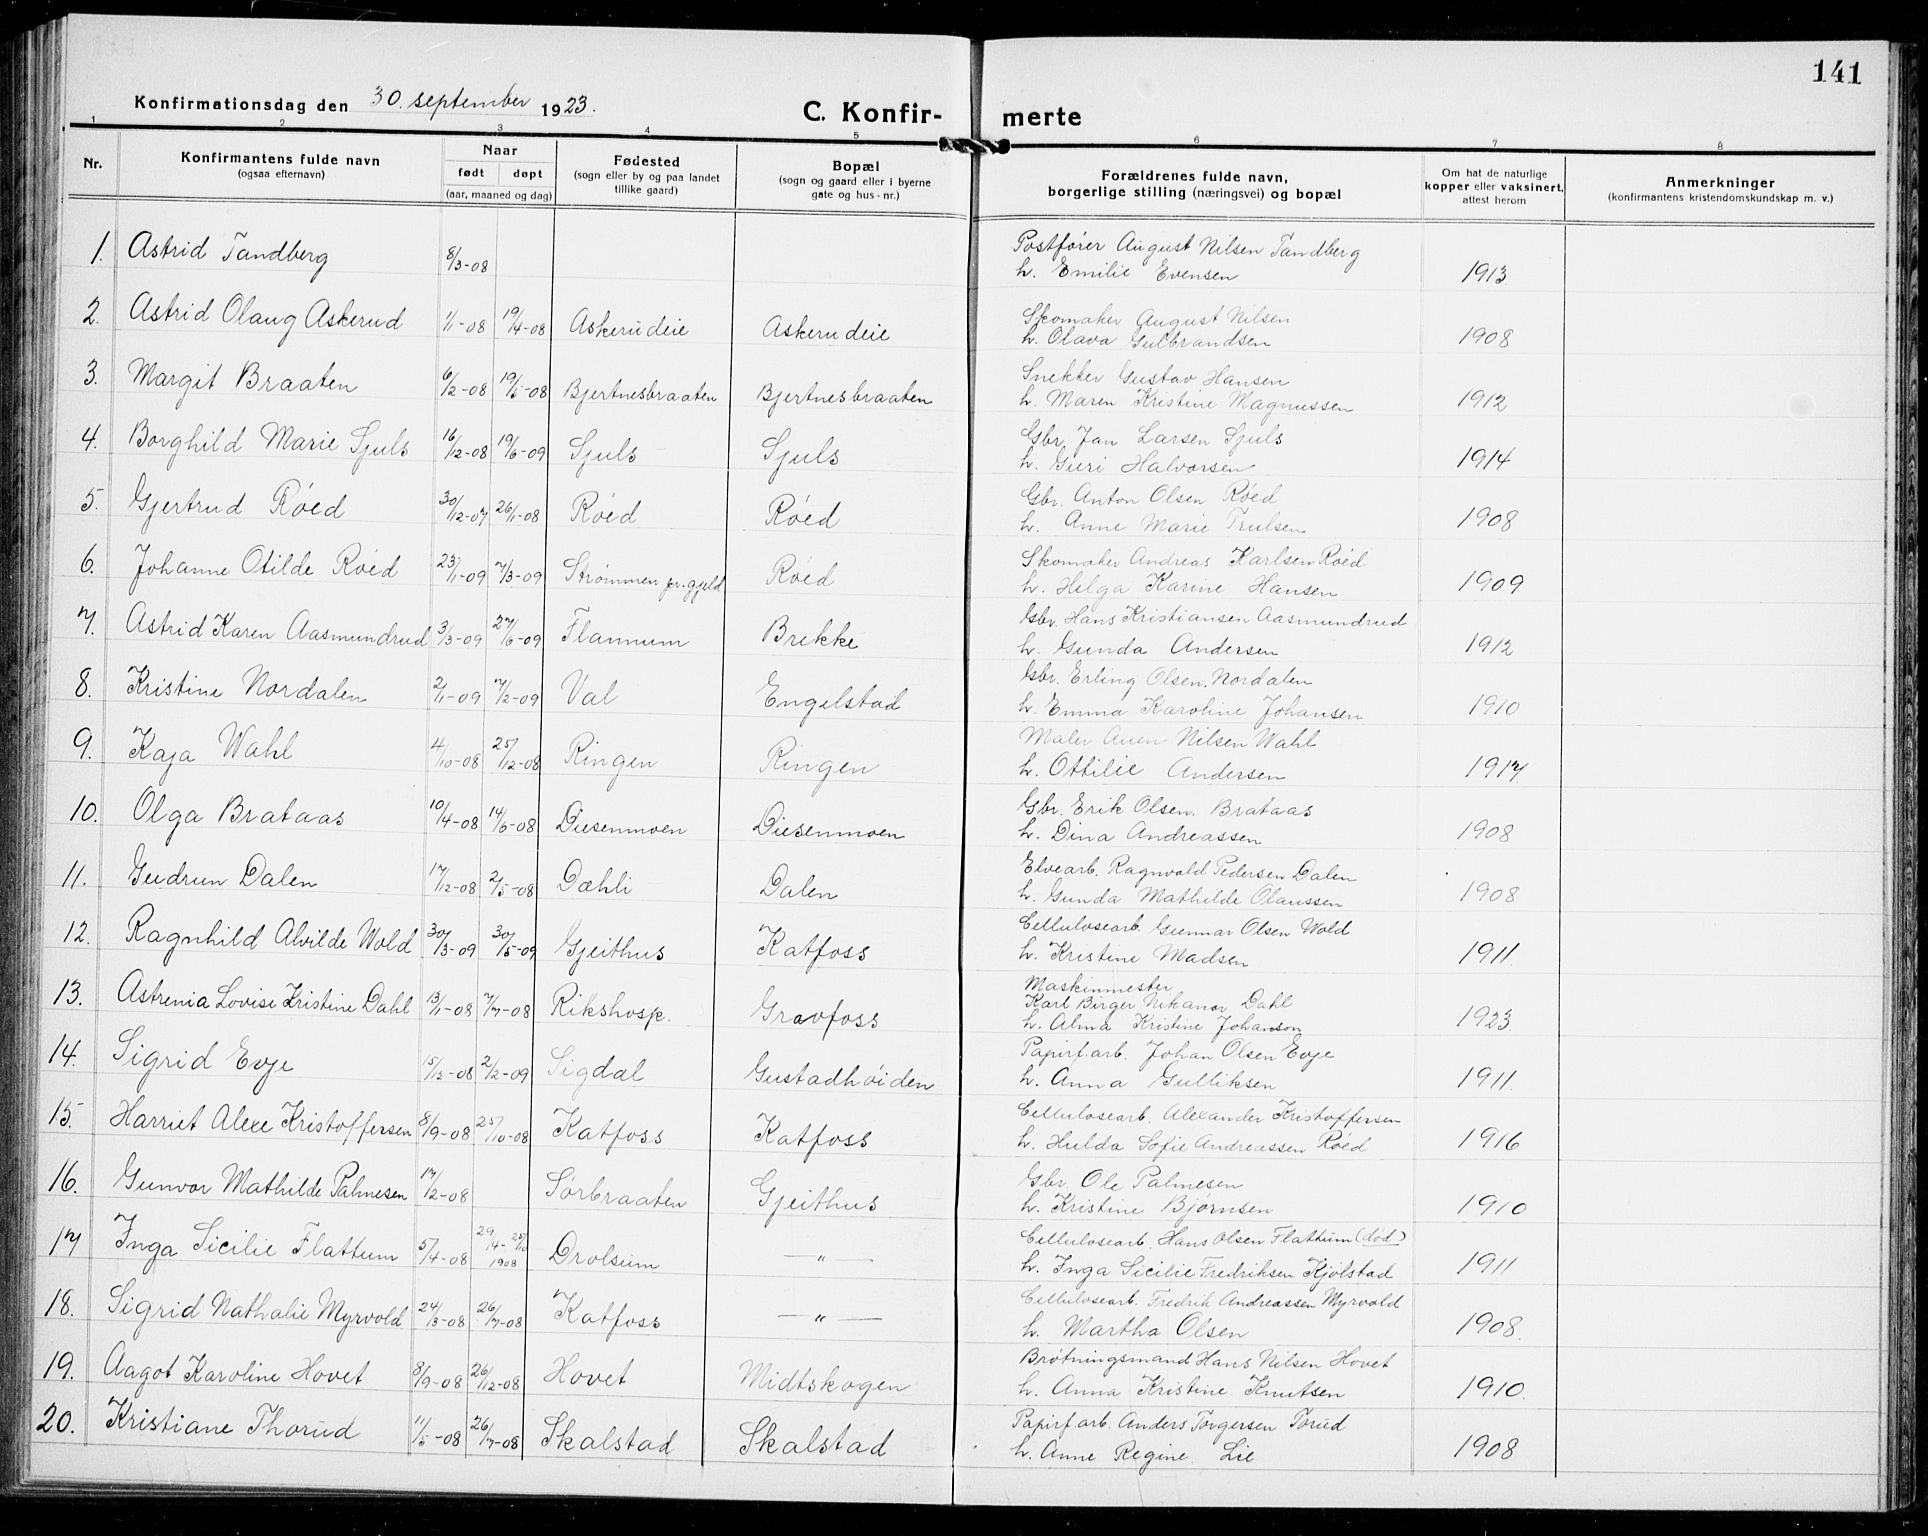 141
Konfirmationsdag den 30. september 1923.
C. Konfir- merte
1 2 3 4 5 6 7 8
Nr.
Konfirmantens fulde navn
(ogsaa efternavn)
Naar
født døpt
(aar, maaned og dag)
Fødested
(sogn eller by og paa landet
tillike gaard)
Bopæl
(sogn og gaard eller i byerne
gate og hus-nr.)
Forældrenes fulde navn,
borgerlige stilling (næringsvei) og bopæl
Om hat de naturlige
kopper eller vaksinert,
attest herom
Anmerkninger
(konfirmantens kristendomskundskap m. v.)
1. Astrid Tandberg 8/3-08 Postfører August Nilsen Tandberg
h. Emilie Evensen 1913
2. Astrid Olaug Askerud 1/1-08 19/4-08 Askerudeie Askerudeie Skomaker August Nilsen
h. Olava Gulbrandsen 1908
3. Margit Braaten 6/2-08 19/5-08 Bjertnesbraaten Bjertnesbraaten Snekker Gustav Hansen
h. Maren Kristine Magnussen 1912
4. Borghild Marie Sjuls 16/12-08 19/6-09 Sjuls Sjuls Gbr. Jan Larsen Sjuls
h. Guri Halvorsen 1914
5. Gjertrud Røed 30/12-07 26/1-08 Røed Røed Gbr. Anton Olsen Røed
h. Anne Marie Trulsen 1908
6. Johanne Otilde Røed 23/1-09 7/3-09 Strømmen pr.gjeld Røed Skomaker Andreas Karlsen Røed
h. Helga Karine Hansen 1909
7. Astrid Karen Aasmundrud 3/3-09 27/6-09 Flannum Brekke Gbr. Hans Kristiansen Aasmundrud
h. Gunda Andersen 1912
8. Kristine Nordalen 2/1-09 7/2-09 Val Engelstad Gbr. Erling Olsen Nordalen
h. Emma Karoline Johansen 1910
9. Kaja Wahl 4/10-08 25/12-08 Ringen Ringen Maler Nilsen Wahl
h. Ottilie Andersen 1917
10. Olga Brataas 10/4-08 14/6-08 Diesenmoen Diesenmoen Gbr. Erik Olsen Brataas
h. Dina Andreassen 1908
11. Gudrun Dalen 17/12-08 2/5-08 Dæhli Dalen Elvearb. Ragnvald Pedersen Dalen
h. Gunda Mathilde Olaussen 1908
12. Ragnhild Alvilde Wold 30/3-09 30/5-09 Gjeithus Katfoss Cellulosearb. Gunnar Olsen Wold
h. Kristine Madsen 1911
13. Astrenia Lovise Kristine Dahl 13/1-08 7/7-08 Rikshosp. Gravfoss Maskinmester
Karl Birger Nikanor Dahl
h. Alma Kristine Johanson 1923
14. Sigrid Evje 15/12-08 2/2-09 Sigdal Gustadhøiden Papirf.arb. Johan Olsen Evje
h. Anna Gulliksen 1911
15. Harriet Alexe Kristoffersen 8/9-08 25/10-08 Katfoss Katfoss Cellulosearb. Alexander Kristoffersen
h. Hulda Sofie Andreassen Røed 1916
16. Gunvor Mathilde Palmesen 17/2-08 Sørbraaten Gjeithus Gbr. Ole Palmesen
h. Kristine Bjørnsen 1910
17 Inga Sicilie Flattum 5/4-08 29/4-25/10 1908 Drolsum — " — Cellulosearb. Hans Olsen Flattum (død)
h. Inga Sicilie Fredriksen Kjølstad 1911
18. Sigrid Nathalie Myrvold 24/3-08 26/7-08 Katfoss — " — Cellulosearb. Fredrik Andreassen Myrvold
h. Martha Olsen 1908.
19. Aagot Karoline Hovet 8/9-08 26/12-08 Hovet Midtskogen Brøtningsmand Hans Nilsen Hovet
h. Anna Kristine Knutsen 1910.
20. Kristiane Thorud 11/5-08 26/7-08 Skalstad Skalstad Papirf.arb. Anders Torgersen Torud
h. Anne Regine Lie 1908